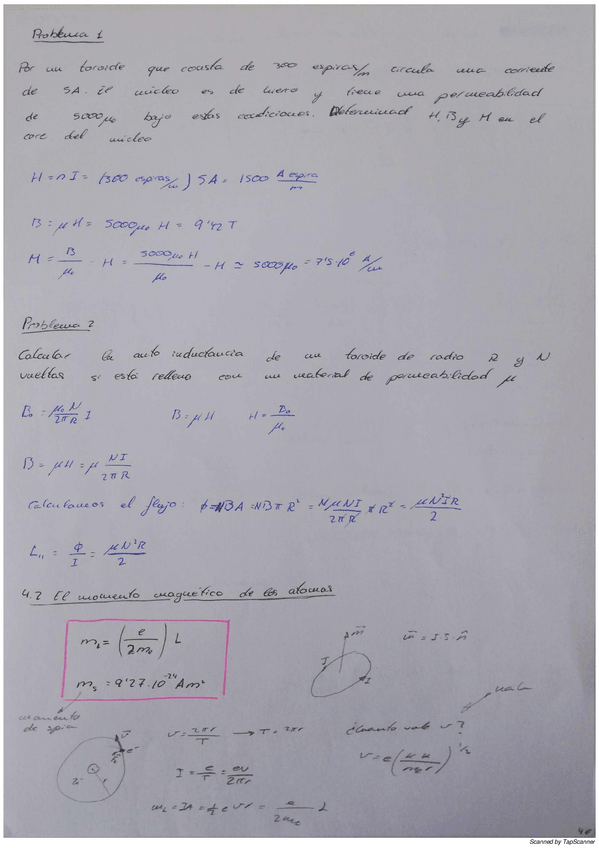 Problema 1
Por un toroide que consta de 300 espiras/m circula una corriente
de 5A. El núcleo es de hierro y tiene una permeabilidad
de 5000μ₀ bajo estas condiciones. Determinad H, B y M en el
core del núcleo
H = nI = (300 espiras/m) 5A = 1500 A espira/m
B = μH = 5000μ₀ H = 9'42 T
M = B/μ₀ - H = 5000μ₀H/μ₀ - H ≃ 5000μ₀ = 7'5·10⁶ A/m
Problema 2
Calcular la auto inductancia de un toroide de radio R y N
vueltas si está relleno con un material de permeabilidad μ
B₀ = μ₀N/2πR I B = μH H = B₀/μ₀
B = μH = μ NI/2πR
Calculamos el flujo: ϕ = NBA = NBπR² = NμNI/2πR πR² = μN²IR/2
L₁₁ = ϕ/I = μN²R/2
4.2 El momento magnético de los átomos
m_L = (e/2mₑ) L
m⃗ = I·S·n⃗
m_s = 9'27·10⁻²⁴ Am²
momento
de spin
v = 2πr/T → T = 2πr
¿Cuanto vale v?
I = e/T = ev/2πr
m_L = IA = ½ e v r = e/2mₑ L
Scanned by TapScanner